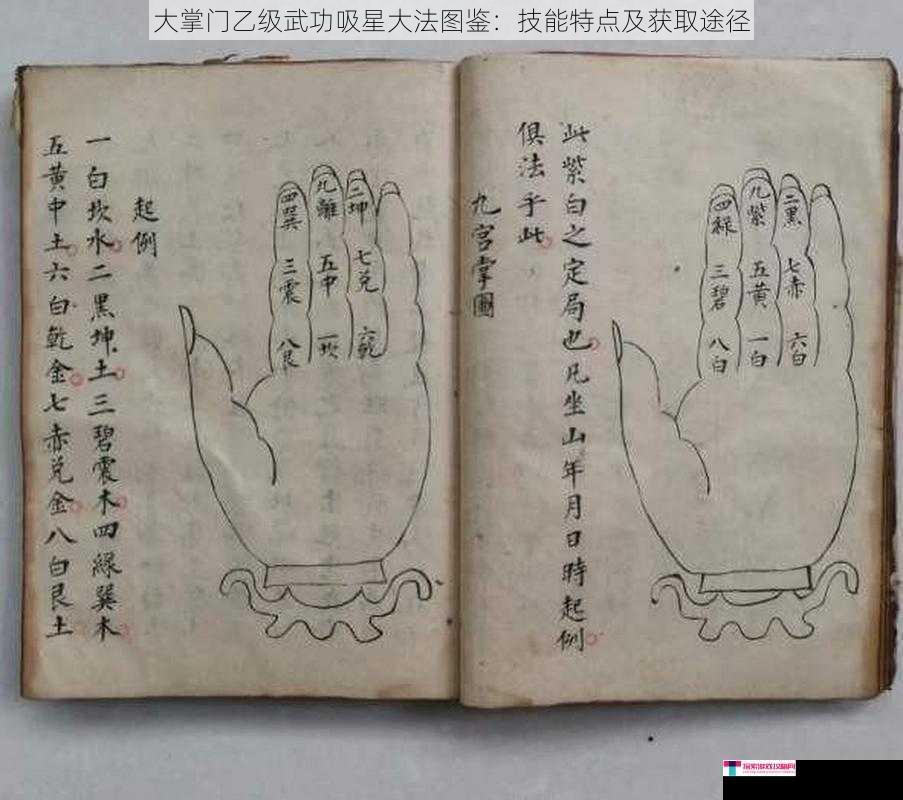 大掌门乙级武功吸星大法图鉴：技能特点及获取途径
此紫白之定局也凡坐山年月日時起例
俱法乎此
九宮掌圖
二黑
七赤
六白
九紫
五黄
一白
四綠
三碧
八白
二坤
七兑
六乾
九離
五中
一坎
四巽
三震
八艮
起例
一白坎水二黑坤土三碧震木四綠巽木
五黄中土六白乾金七赤兑金八白艮土
探索游戏攻略网